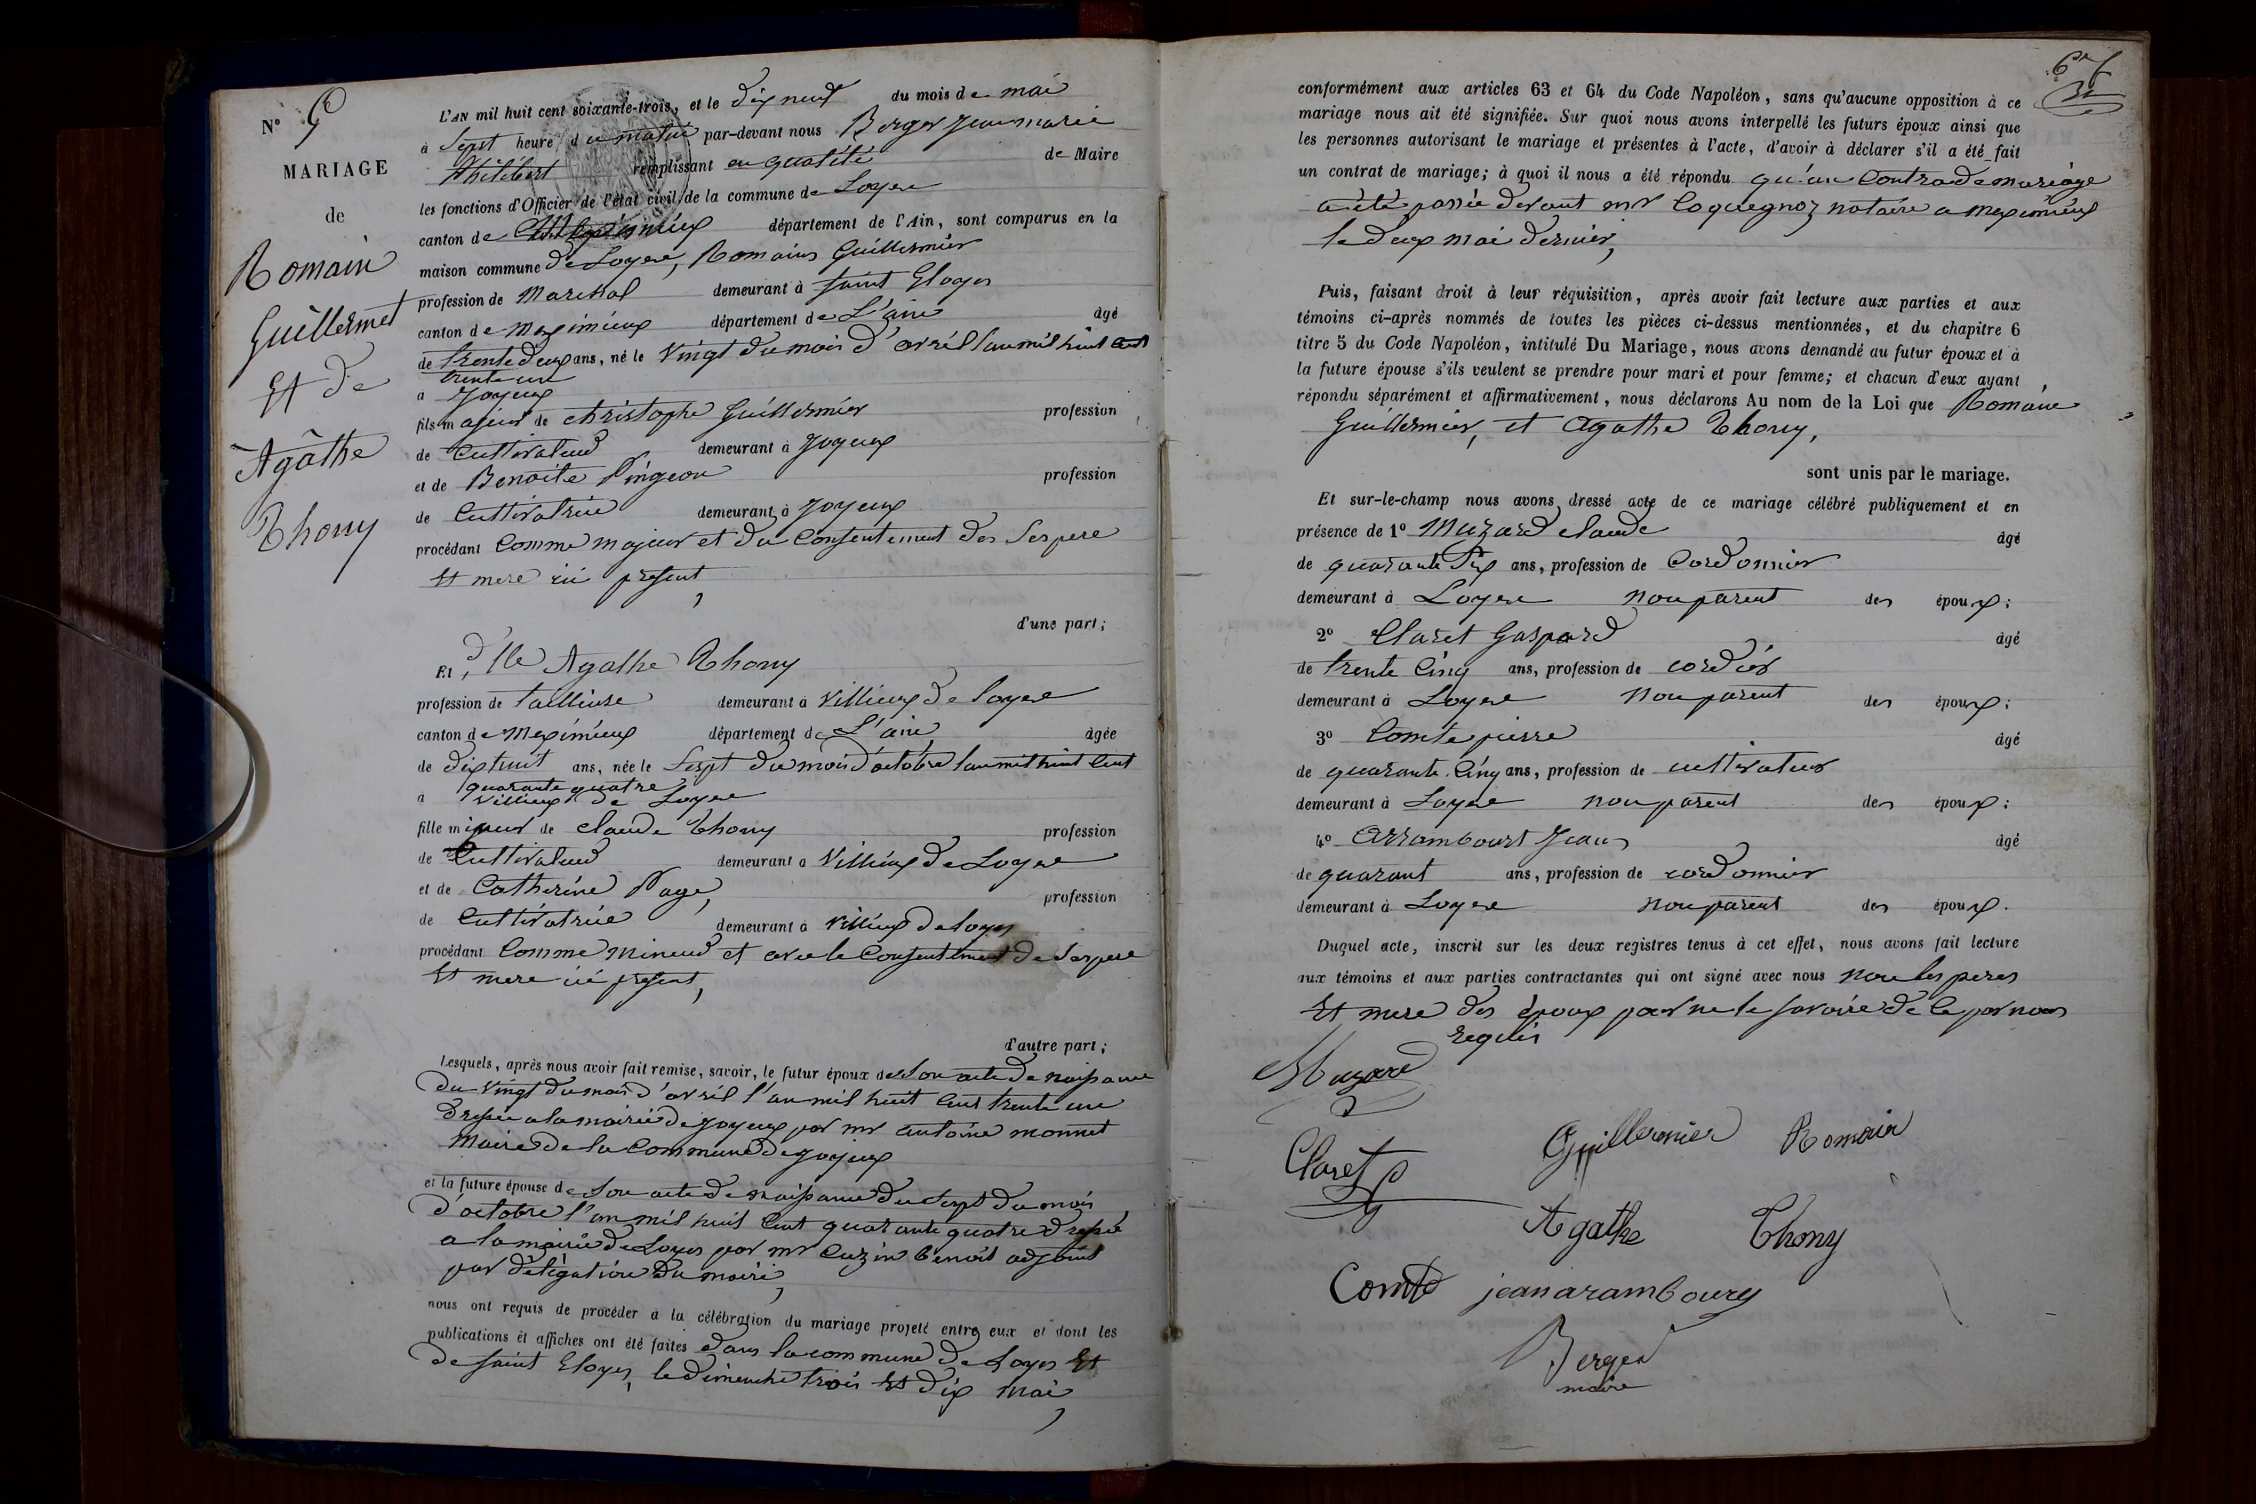 Nº 6
MARIAGE
de
Romain
Guillermet
Et de
Agâthe
Thony
L'AN mil huit cent soixante-trois, et le dix neuf du mois de mai
à Sept heure du matin par-devant nous Berger Jean marie
Philibert remplissant en qualité de Maire
les fonctions d'Officier de l'état civil de la commune de Loyes
canton de Meximieux département de l'Ain, sont comparus en la
maison commune de Loyes, Romains Guillermier
profession de Marechal demeurant à Saint Eloyes
canton de meximieux département de L'ain âgé
de trente deux ans, né le vingt du mois d'avril l'an mil huit cent
trente un
à Joyeux
fils majeur de christophe Guillermier profession
de Cultivateur demeurant à Joyeux
et de Benoite Pingeon profession
de Cultivatrice demeurant à Joyeux
procédant Comme majeur et du Consentement des Ses pere
Et mere ici present,
d'une part;
Et dlle Agathe Thony
profession de tailleuse demeurant à Villieux de loyes
canton de Meximieux département de L'ain âgée
de dix huit ans, née le Sept du mois d'octobre l'an mil huit Cent
quarante quatre
à Villieux de Loyes
fille mineur de claude Thony profession
de Cultivateur demeurant à Villieux de Loyes
et de Catherine Page, profession
de Cultivatrice demeurant à Villieux de loyes
procédant Comme mineur et avec le Consentement de Ses pere
Et mere ici present,
d'autre part;
Lesquels, après nous avoir fait remise, savoir, le futur époux de Son acte de naissance
du vingt du mois d'avril l'an mil huit Cent trente un
dressée a la mairie de Joyeux par mr antoine monnet
Maire de la Commune de Joyeux
et la future épouse de Son acte de naissance du Sept du mois
d'octobre l'an mil huit Cent quarante quatre dressé
a la mairie de Loyes par mr Cuzin benoit adjoint
par délégation du maire,
nous ont requis de procéder à la célébration du mariage projeté entre eux et dont les
publications et affiches ont été faites dans la commune de Loyes Et
de Saint Eloyes, le dimenche trois Et dix mai,
conformément aux articles 63 et 64 du Code Napoléon, sans qu'aucune opposition à ce
mariage nous ait été signifiée. Sur quoi nous avons interpellé les futurs époux ainsi que
les personnes autorisant le mariage et présentes à l'acte, d'avoir à déclarer s'il a été fait
un contrat de mariage; à quoi il nous a été répondu qu'un Contra de mariage
a été passée devant mr Coquegnoz notaire a meximieux
le deux mai dernier,
Puis, faisant droit à leur réquisition, après avoir fait lecture aux parties et aux
témoins ci-après nommés de toutes les pièces ci-dessus mentionnées, et du chapitre 6
titre 5 du Code Napoléon, intitulé Du Mariage, nous avons demandé au futur époux et à
la future épouse s'ils veulent se prendre pour mari et pour femme; et chacun d'eux ayant
répondu séparément et affirmativement, nous déclarons Au nom de la Loi que Romain
Guillermier, et Agathe Thony,
sont unis par le mariage.
Et sur-le-champ nous avons dressé acte de ce mariage célébré publiquement et en
présence de 1º Muzard claude âgé
de quarante Six ans, profession de Cordonnier
demeurant à Loyes non parent des époux;
2º Claret Gaspard âgé
de trente Cinq ans, profession de cordier
demeurant à Loyes non parent des époux;
3º Comte pierre âgé
de quarante Cinq ans, profession de cultivateur
demeurant à Loyes non parent des époux;
4º Arrambourt Jean âgé
de quarant ans, profession de cordonnier
demeurant à Loyes non parent des époux.
Duquel acte, inscrit sur les deux registres tenus à cet effet, nous avons fait lecture
aux témoins et aux parties contractantes qui ont signé avec nous non les peres
Et mere des époux pour ne le savoire de ce par nous
requis
Muzard
Guillermier Romain
Claret
Agathe Thony
Comte jean arambourg
Berger
maire